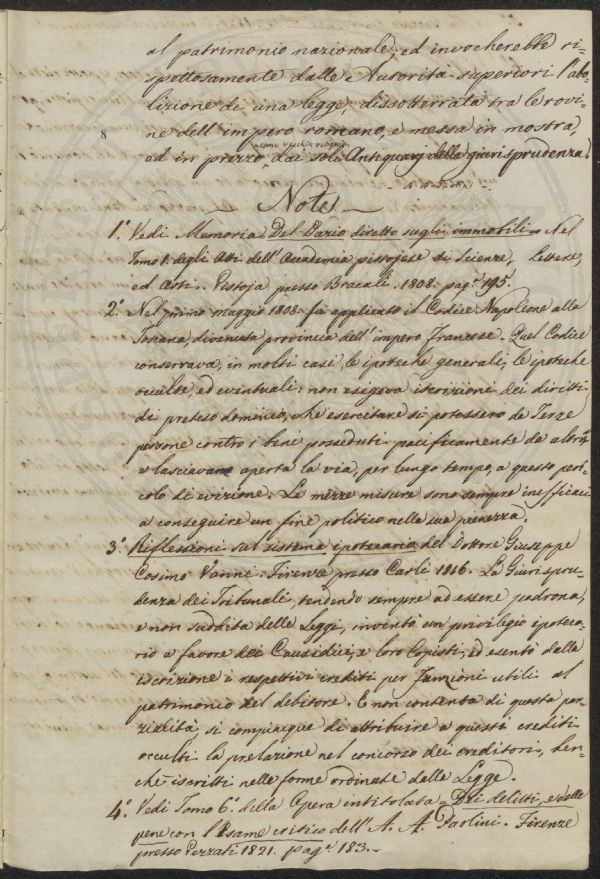 al patrimonio nazionale; ed invocherebbe ri=
spettosamente dalle Autorità superiori l'abo=
lizione di una legge, dissotterrata tra le rovi=
8 ne dell'impero romano, e messa in mostra,
come vecchia reliquia
ed in prezzo, dai soli Antiquarj della giurisprudenza.
Note
1.° Vedi Memoria Del Dazio diretto sugli immobili = Nel
Tomo 1. degli Atti dell'Accademia pistojese di Scienze, Lettere,
ed Arti. Pistoja presso Bracali. 1808. pag.e 195.
2.° Nel primo maggio 1808. fu applicato il Codice Napoleone alla
Toscana divenuta provincia dell'impero Francese. Quel Codice
conservava, in molti casi, le ipoteche generali, le ipoteche
occulte, ed eventuali: non esigeva iscrizioni dei diritti
di preteso dominio, che esercitare si potessero da Terze
persone contro i beni posseduti pacificamente da altri;
e lasciava aperta la via, per lungo tempo, a questo peri=
colo di evizione. Le mezze misure sono sempre inefficaci
a conseguire un fine politico nella sua pienezza.
3.° Riflessioni sul sistema ipotecario del Dottore Giuseppe
Cosimo Vanni. Firenze presso Carli 1816. La Giurispru=
denza dei Tribunali, tendendo sempre ad essere padrona,
e non suddita delle Leggi, inventò un privilegio ipoteca=
rio a favore dei Causidici, e loro Copisti, ed esentò dalla
iscrizione i respettivi crediti per funzioni utili al
patrimonio del debitore. E non contenta di questa par=
zialità, si compiacque di attribuire a questi crediti
occulti la prelazione nel concorso dei creditori, ben=
chè iscritti nelle forme ordinate dalla Legge.
4.° Vedi Tomo 6.° della Opera intitolata = Dei delitti, e delle
pene con l'Esame critico dell'A. A. Paolini. Firenze
presso Pezzati 1821. pag.e 183. =